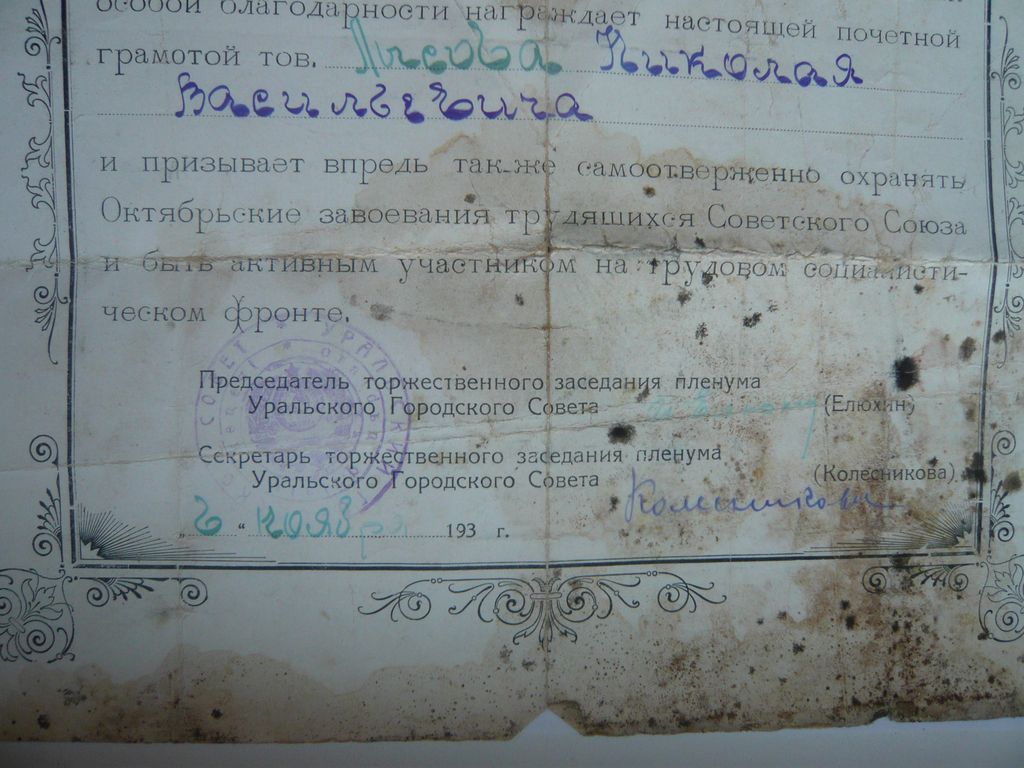 особой благодарности награждает настоящей почетной
грамотой тов. Лисова Николая
Васильевича
и призывает впредь так-же самоотверженно охранять
Октябрьские завоевания трудящихся Советского Союза
и быть активным участником на трудовом социалисти-
ческом фронте.
Председатель торжественного заседания пленума
Уральского Городского Совета (Елюхин)
Секретарь торжественного заседания пленума
Уральского Городского Совета (Колесникова)
„6“ ноября 193 г.